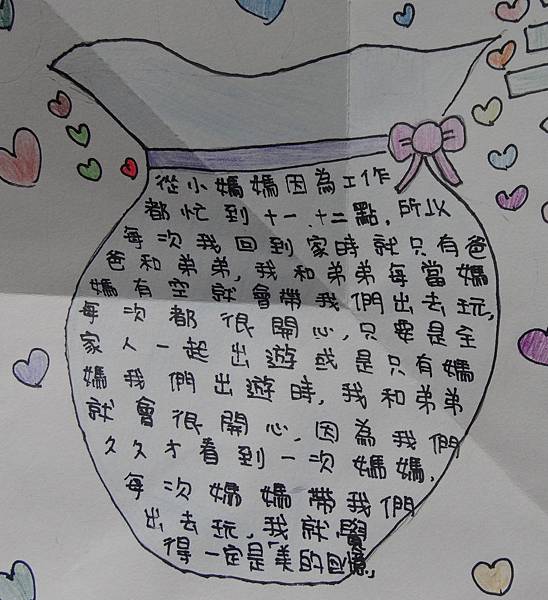 從小媽媽因為工作
都忙到十一、十二點，所以
每次我回到家時就只有爸
爸和弟弟，我和弟弟每當媽
媽有空就會帶我們出去玩，
每次都很開心，只要是全
家人一起出遊或是只有媽
媽我們出遊時，我和弟弟
就會很開心，因為我們
久久才看到一次媽媽，
每次媽媽帶我們
出去玩，我就覺
得一定是「美的回憶」